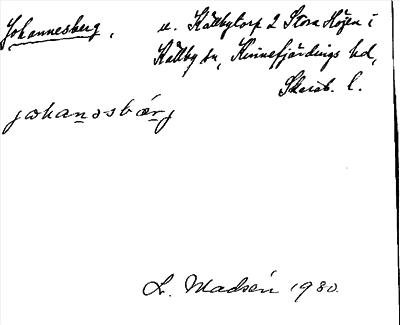 Johannesberg, u. Källbytorp 2 Stora Höjen i
Källby sn, Kinnefjärdings hd,
Skarab. l.
johanəsbärj
L. Madsén 1930.